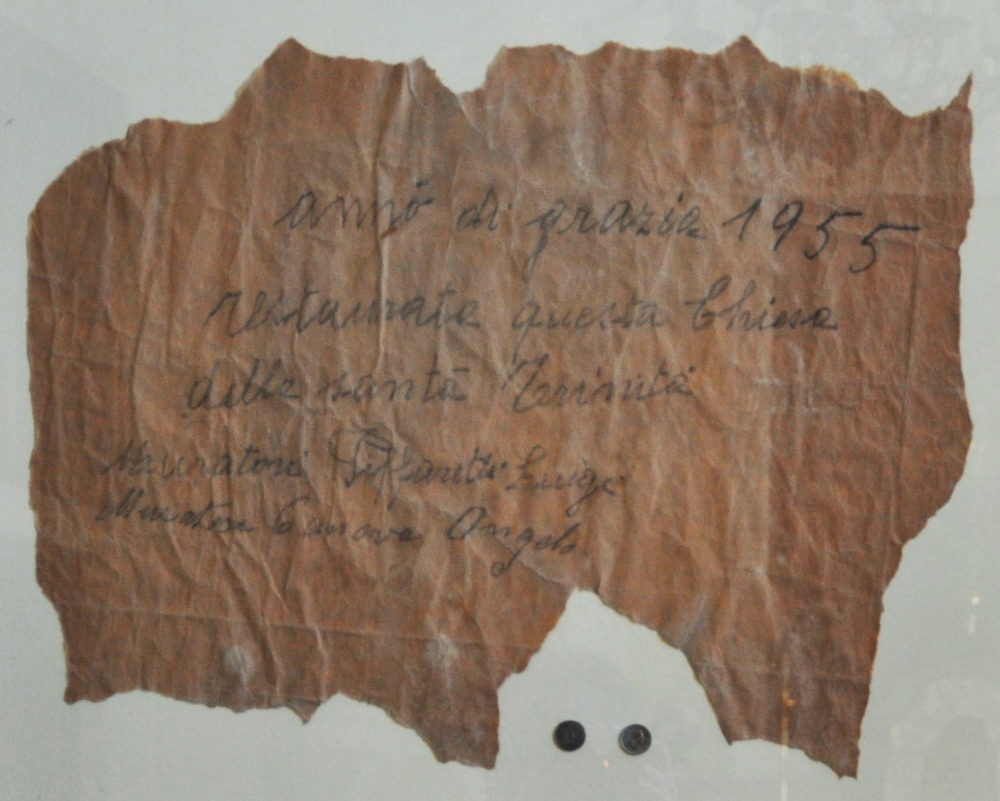 anno di grazia 1955
restaurata questa Chiesa
della santa Trinità
Muratori Luigi
Canova Angelo